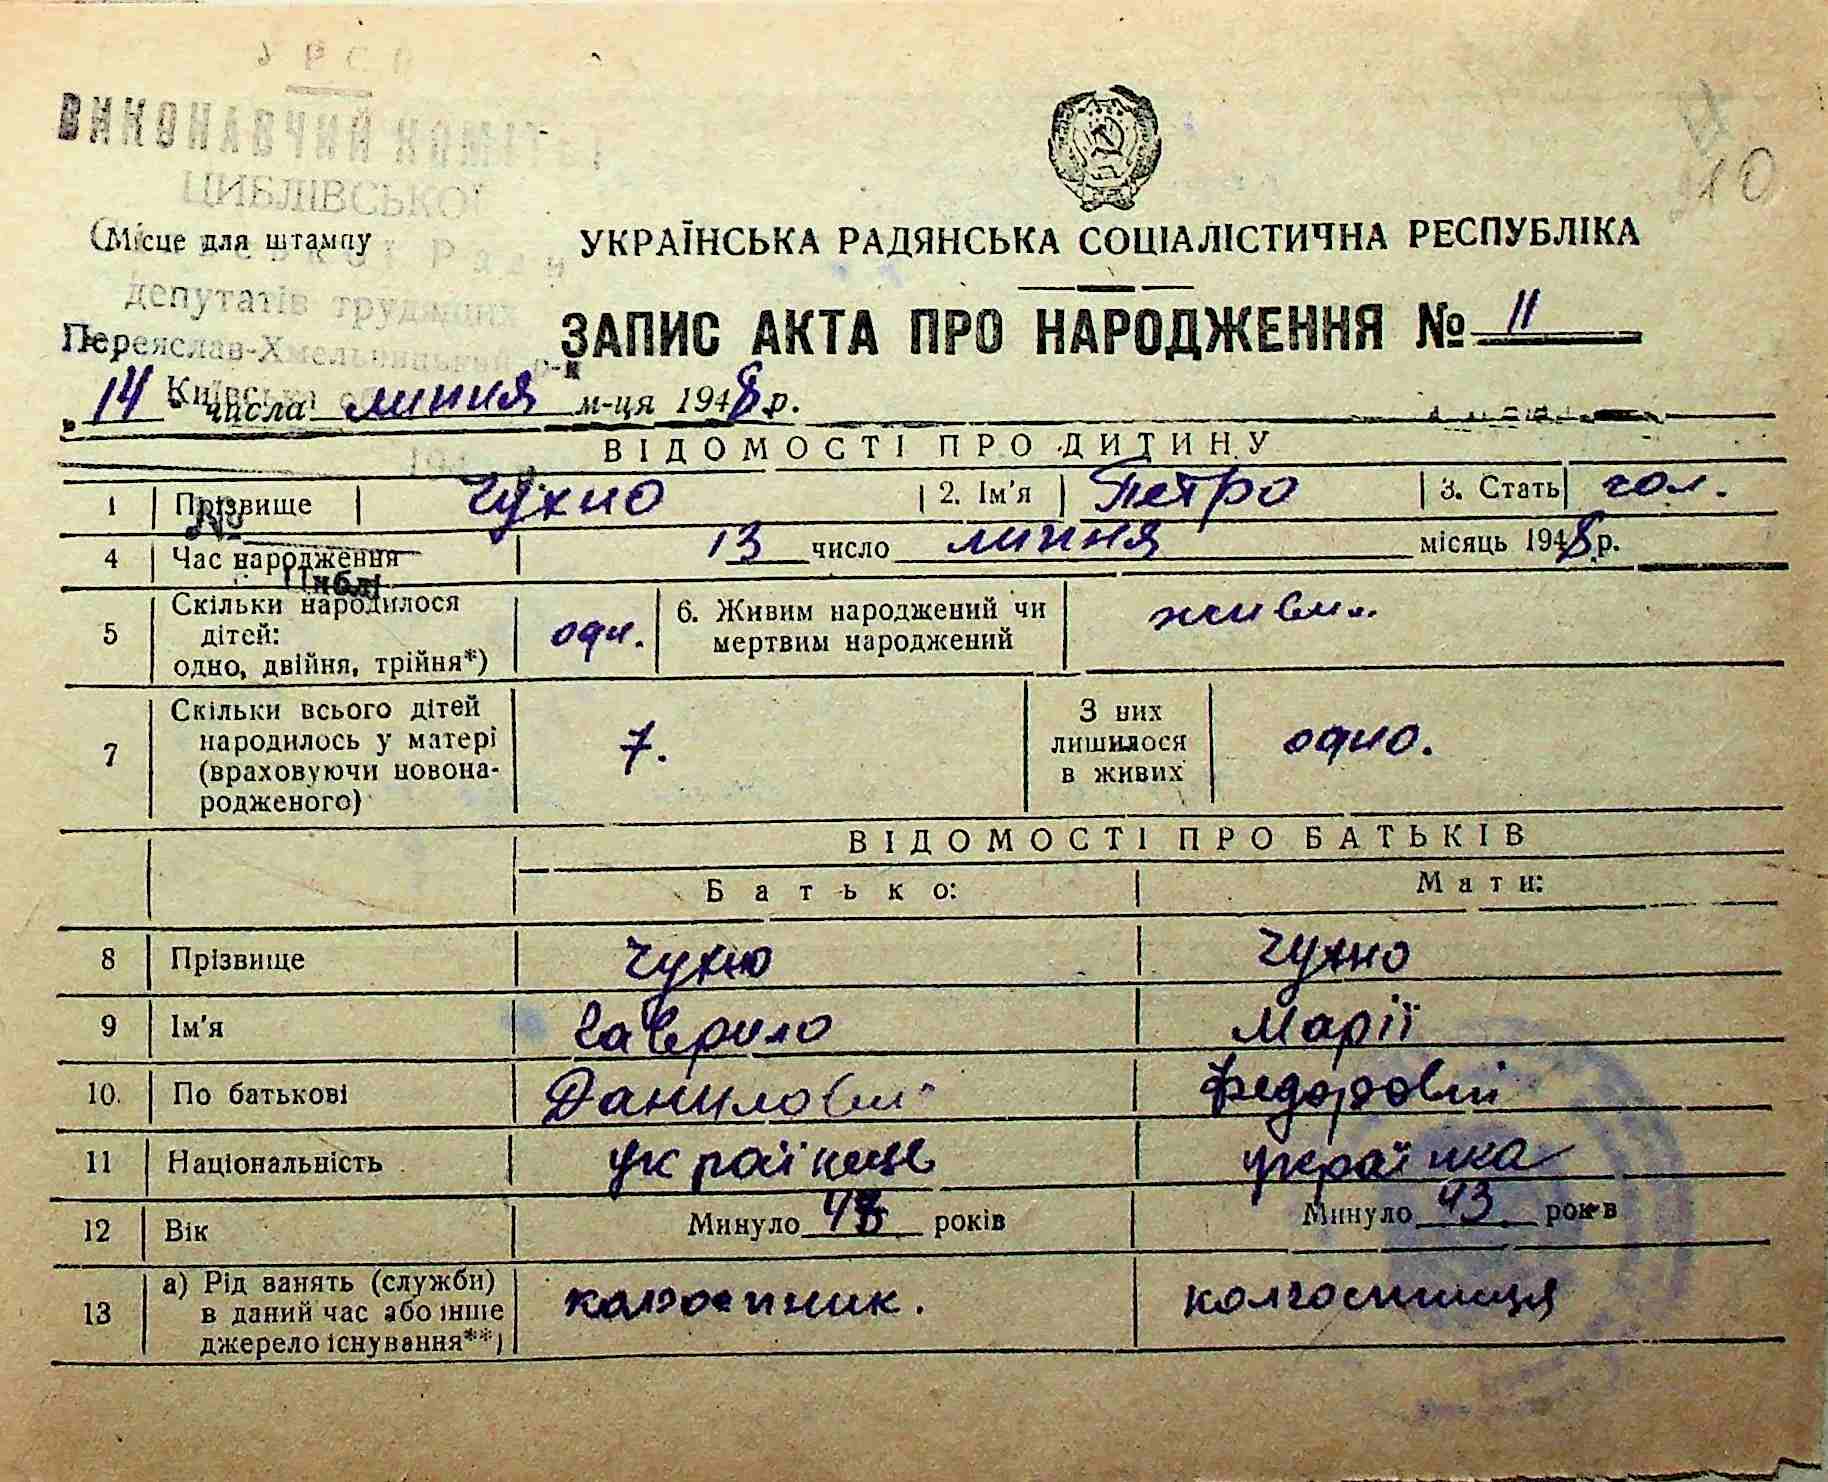 УРСР
ВИКОНАВЧИЙ КОМІТЕТ
ЦИБЛІВСЬКОЇ
Сільської Ради
(Місце для штампу
депутатів трудящих
Переяслав-Хмельницький р-н
Київська
10
УКРАЇНСЬКА РАДЯНСЬКА СОЦІАЛІСТИЧНА РЕСПУБЛІКА
ЗАПИС АКТА ПРО НАРОДЖЕННЯ № 11
„14" числа липня м-ця 1948 р.
ВІДОМОСТІ ПРО ДИТИНУ
1 Прізвище Чухно 2. Ім'я Петро 3. Стать чол.
№
4 Час народження 13 число липня місяць 1948 р.
Циблі
5 Скільки народилося дітей: одно, двійня, трійня*) одн. 6. Живим народжений чи мертвим народжений живим.
7 Скільки всього дітей народилось у матері (враховуючи новонародженого) 7. З них лишилося в живих одно.
ВІДОМОСТІ ПРО БАТЬКІВ
Батько: Мати:
8 Прізвище Чухно Чухно
9 Ім'я Гаврило Марії
10. По батькові Данилович Федоровни
11 Національність українець українка
12 Вік Минуло 43 років Минуло 43 років
13 а) Рід занять (служби) в даний час або інше джерело існування**) колгоспник. колгоспниця